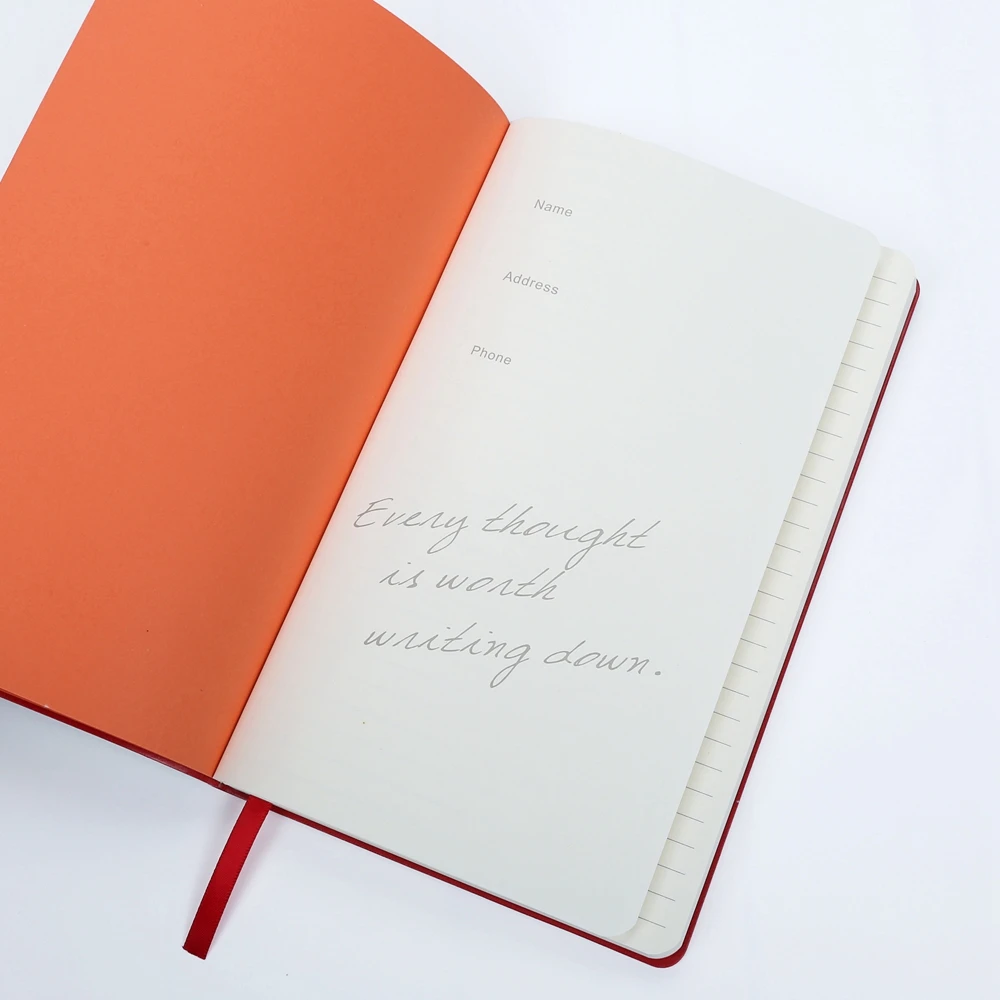 Name
Address
Phone
Every thought
is worth
writing down.